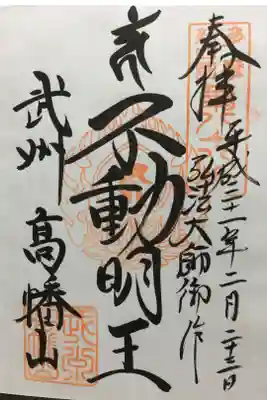 奉拝
平成三十一年二月二十三日
弘法大師御作
不動明王
武州 高幡山